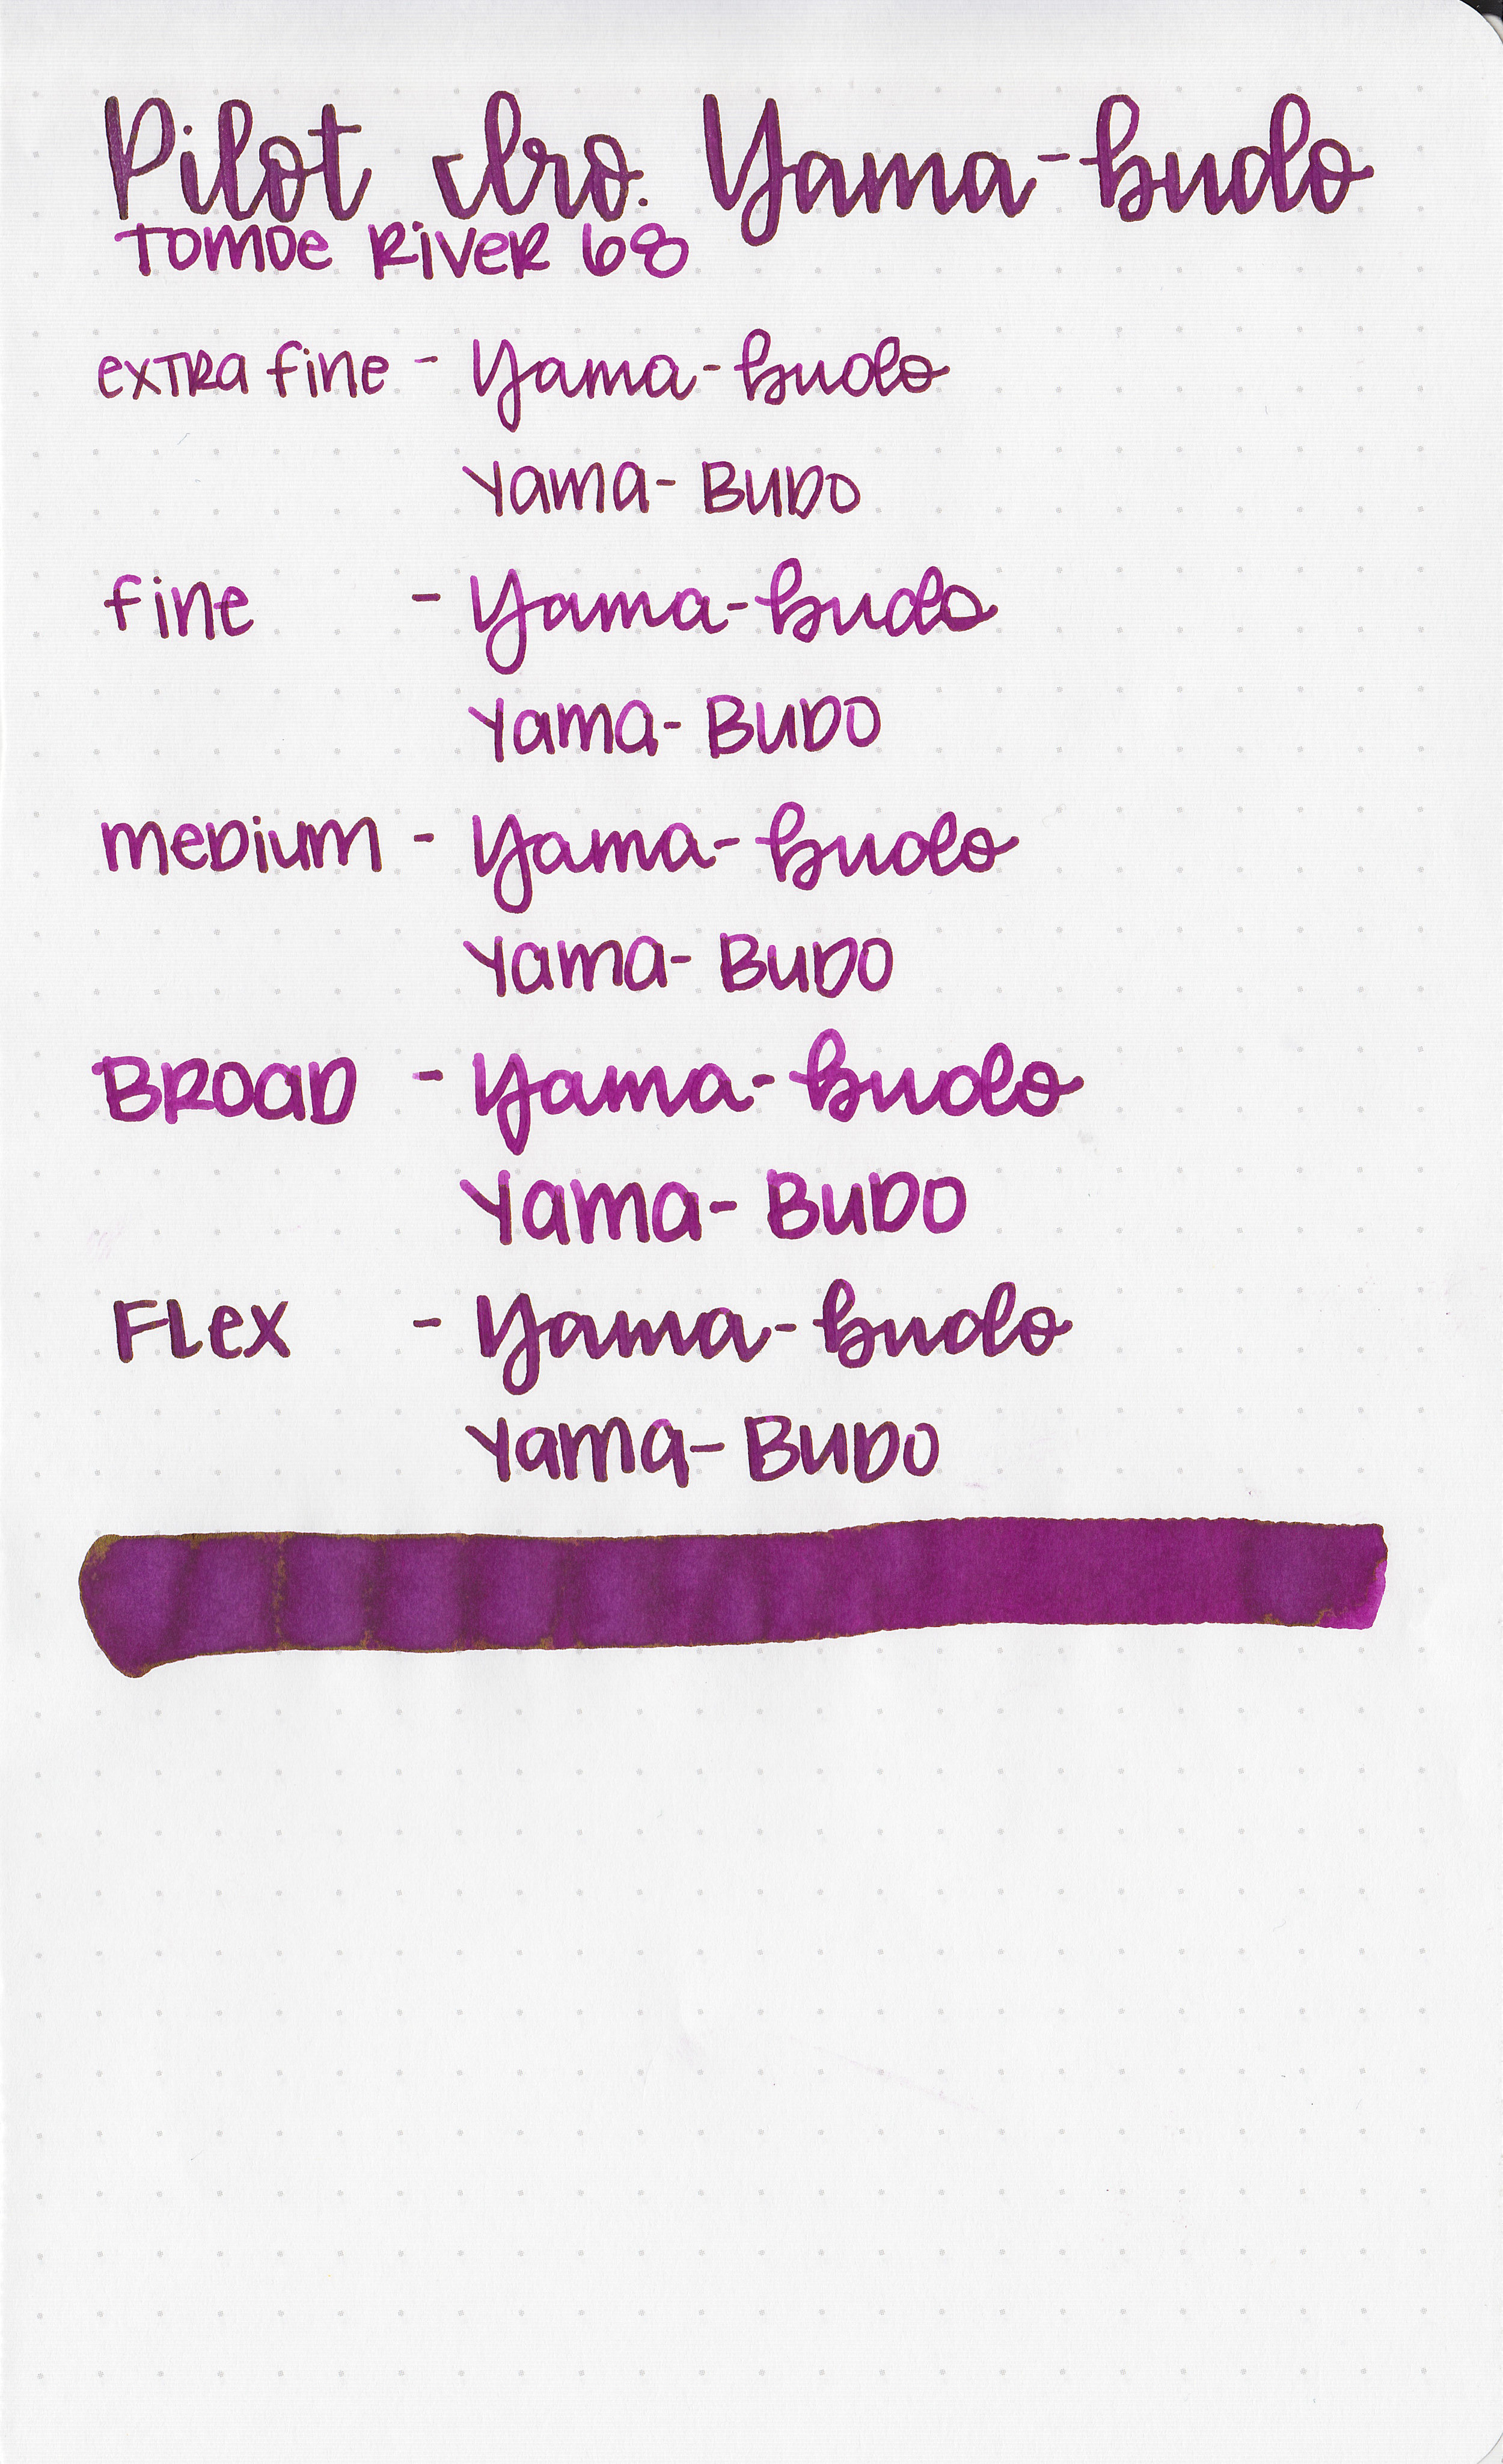 Pilot Iro. Yama-budo
Tomoe River 68
extra fine - Yama-budo
Yama-Budo
fine - Yama-budo
Yama-Budo
medium - Yama-budo
Yama-Budo
Broad - Yama-budo
Yama-Budo
Flex - Yama-budo
Yama-Budo